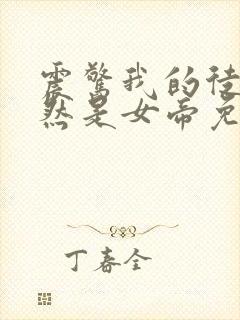 震惊我的徒
然是女帝免
丁春全